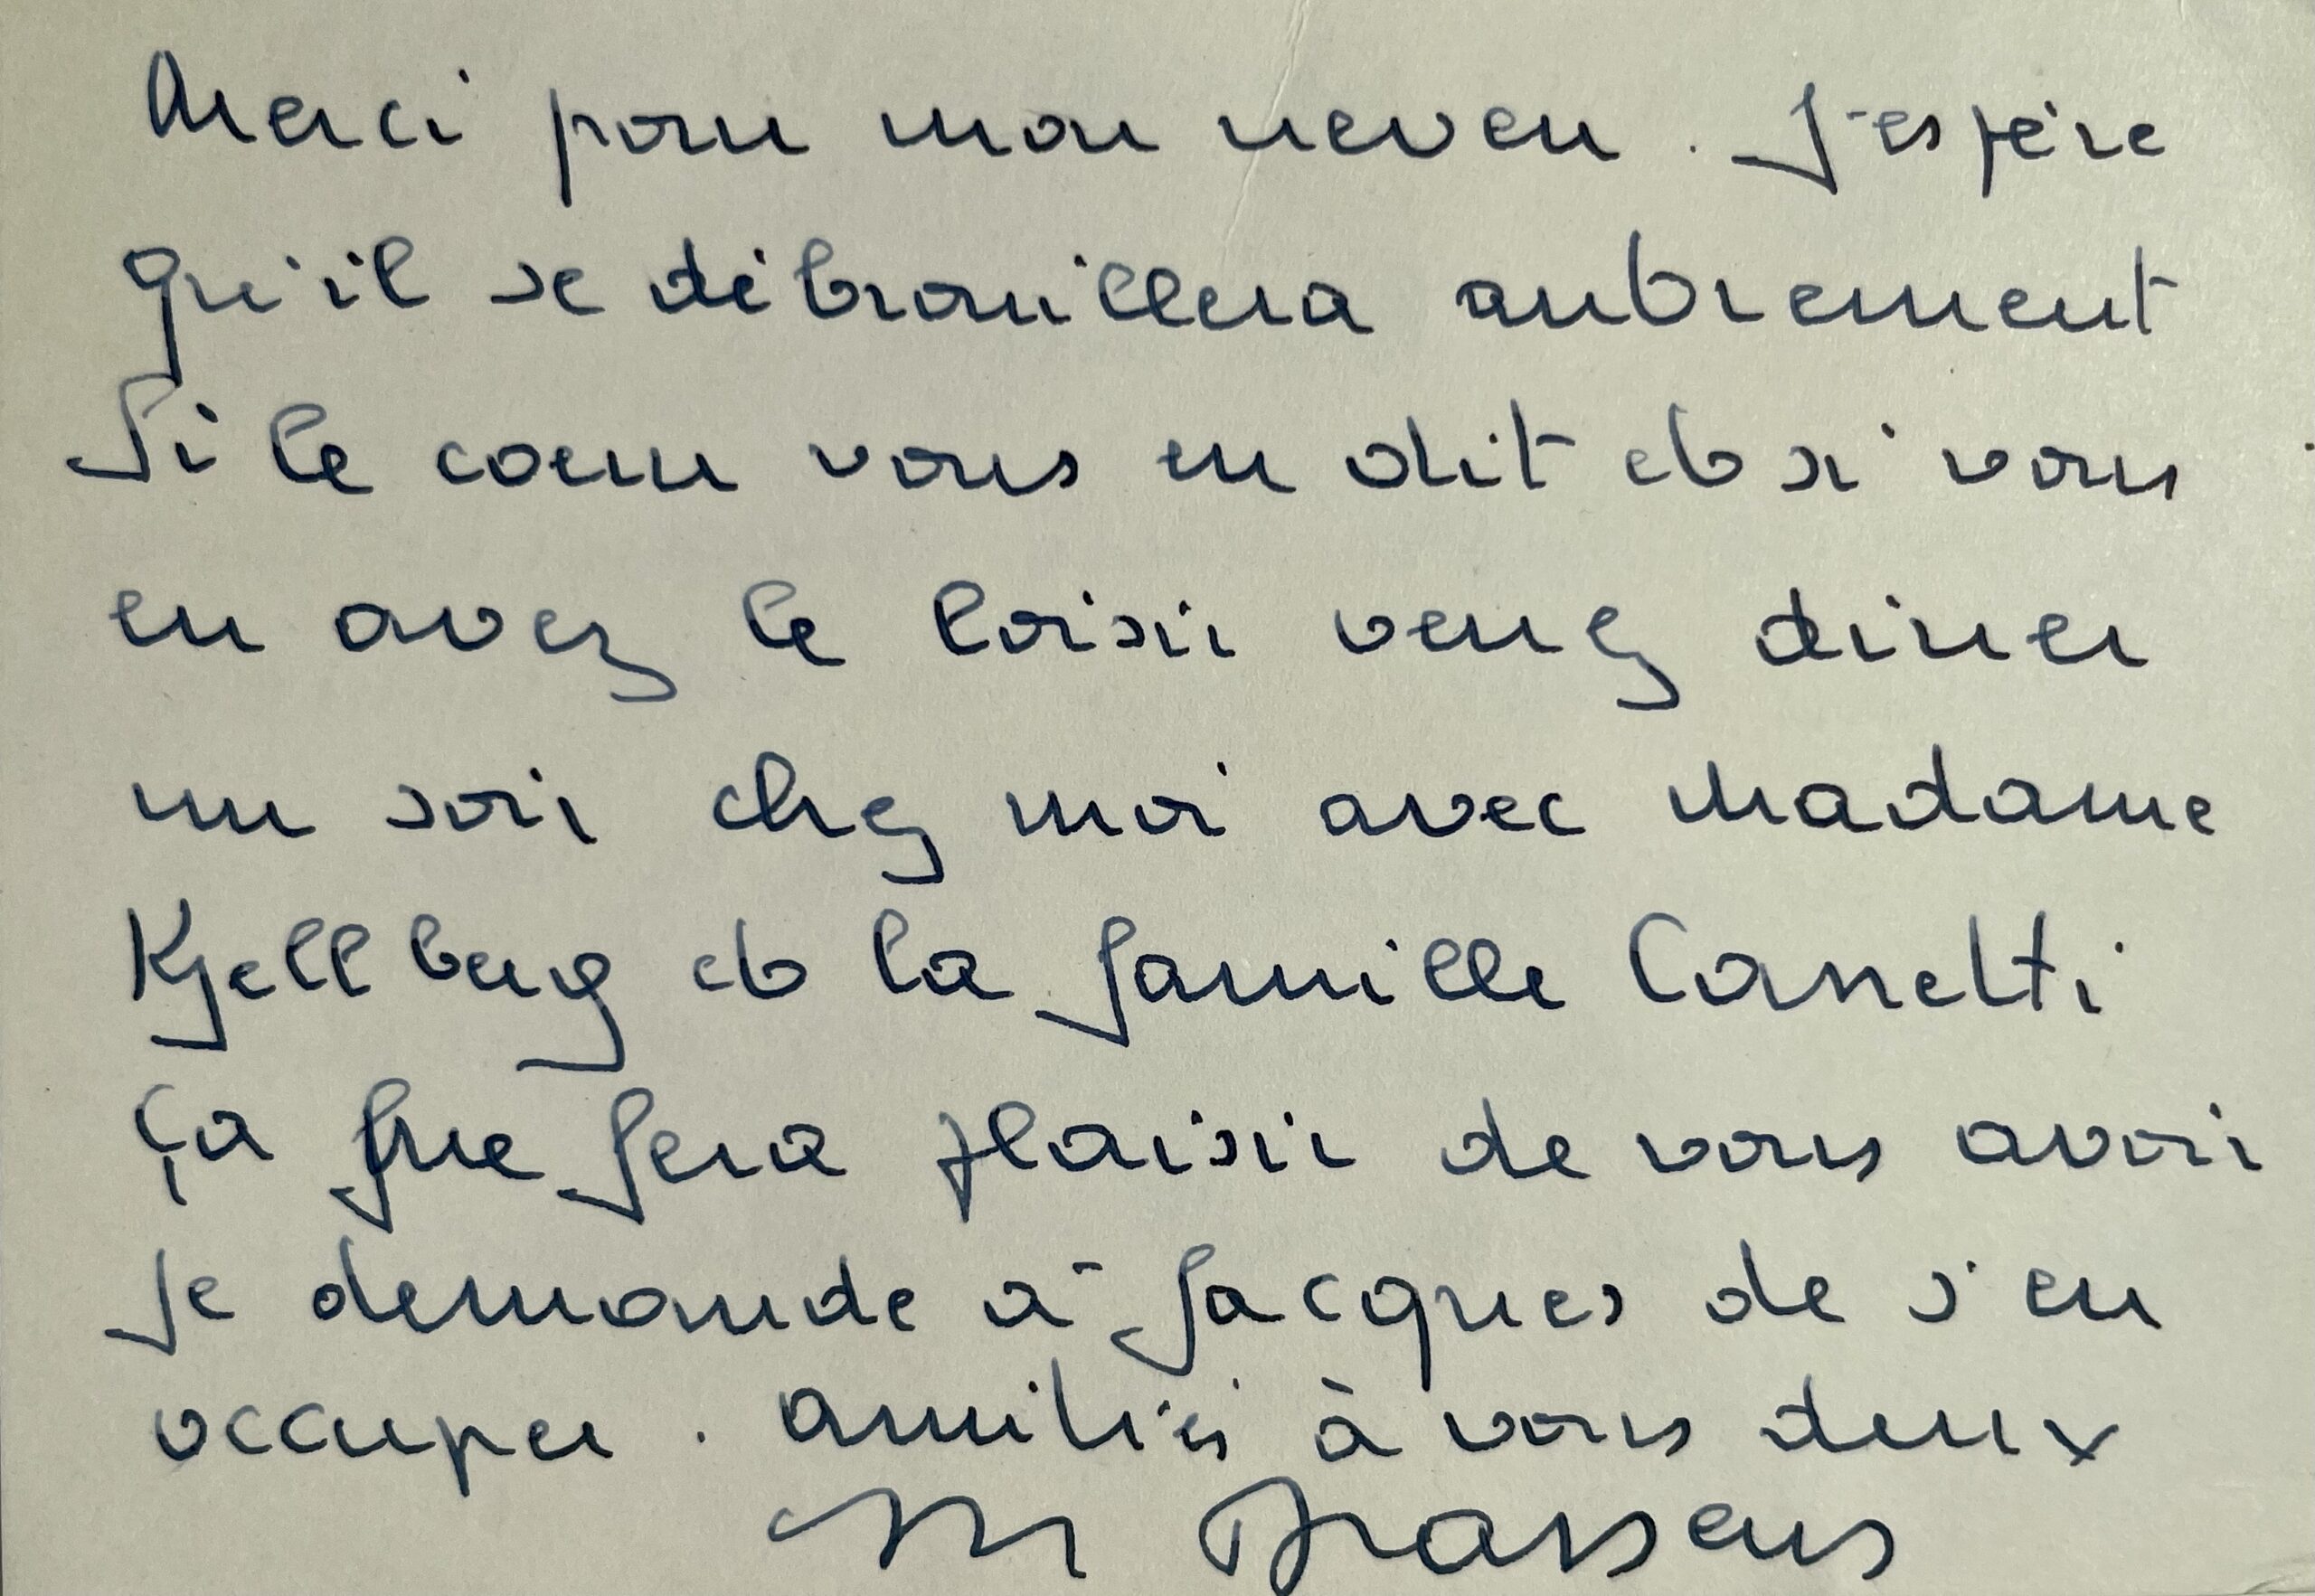 Merci pour mon neveu. J'espère
qu'il se débrouillera autrement
Si le coeur vous en dit et si vous
en avez le loisir venez diner
un soir chez moi avec Madame
Kjellberg et la famille Canetti
ça me fera plaisir de vous avoir
Je demande à Jacques de s'en
occuper. Amitiés à vous deux
Brassens